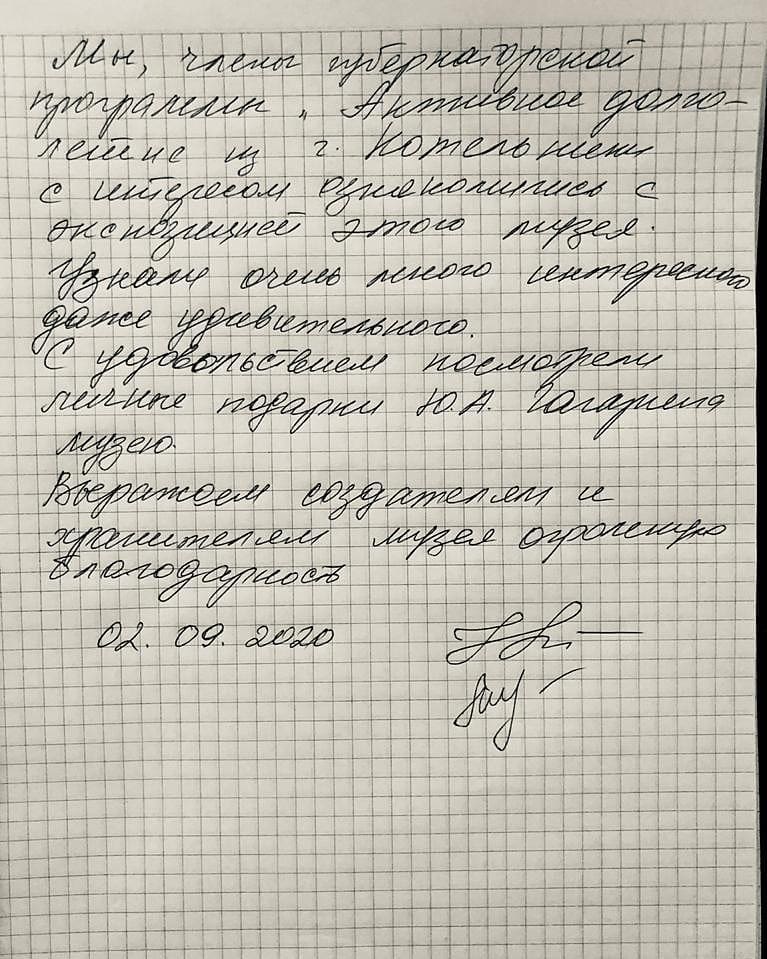 Мы, члены губернаторской
программы „Активное долго-
летие из г. Котельники
с интересом ознакомились с
экспозицией этого музея.
Узнали очень много интересного
даже удивительного.
С удовольствием посмотрели
личные подарки Ю.А. Гагарина
музею.
Выражаем создателям и
хранителям музея огромную
благодарность
02. 09. 2020